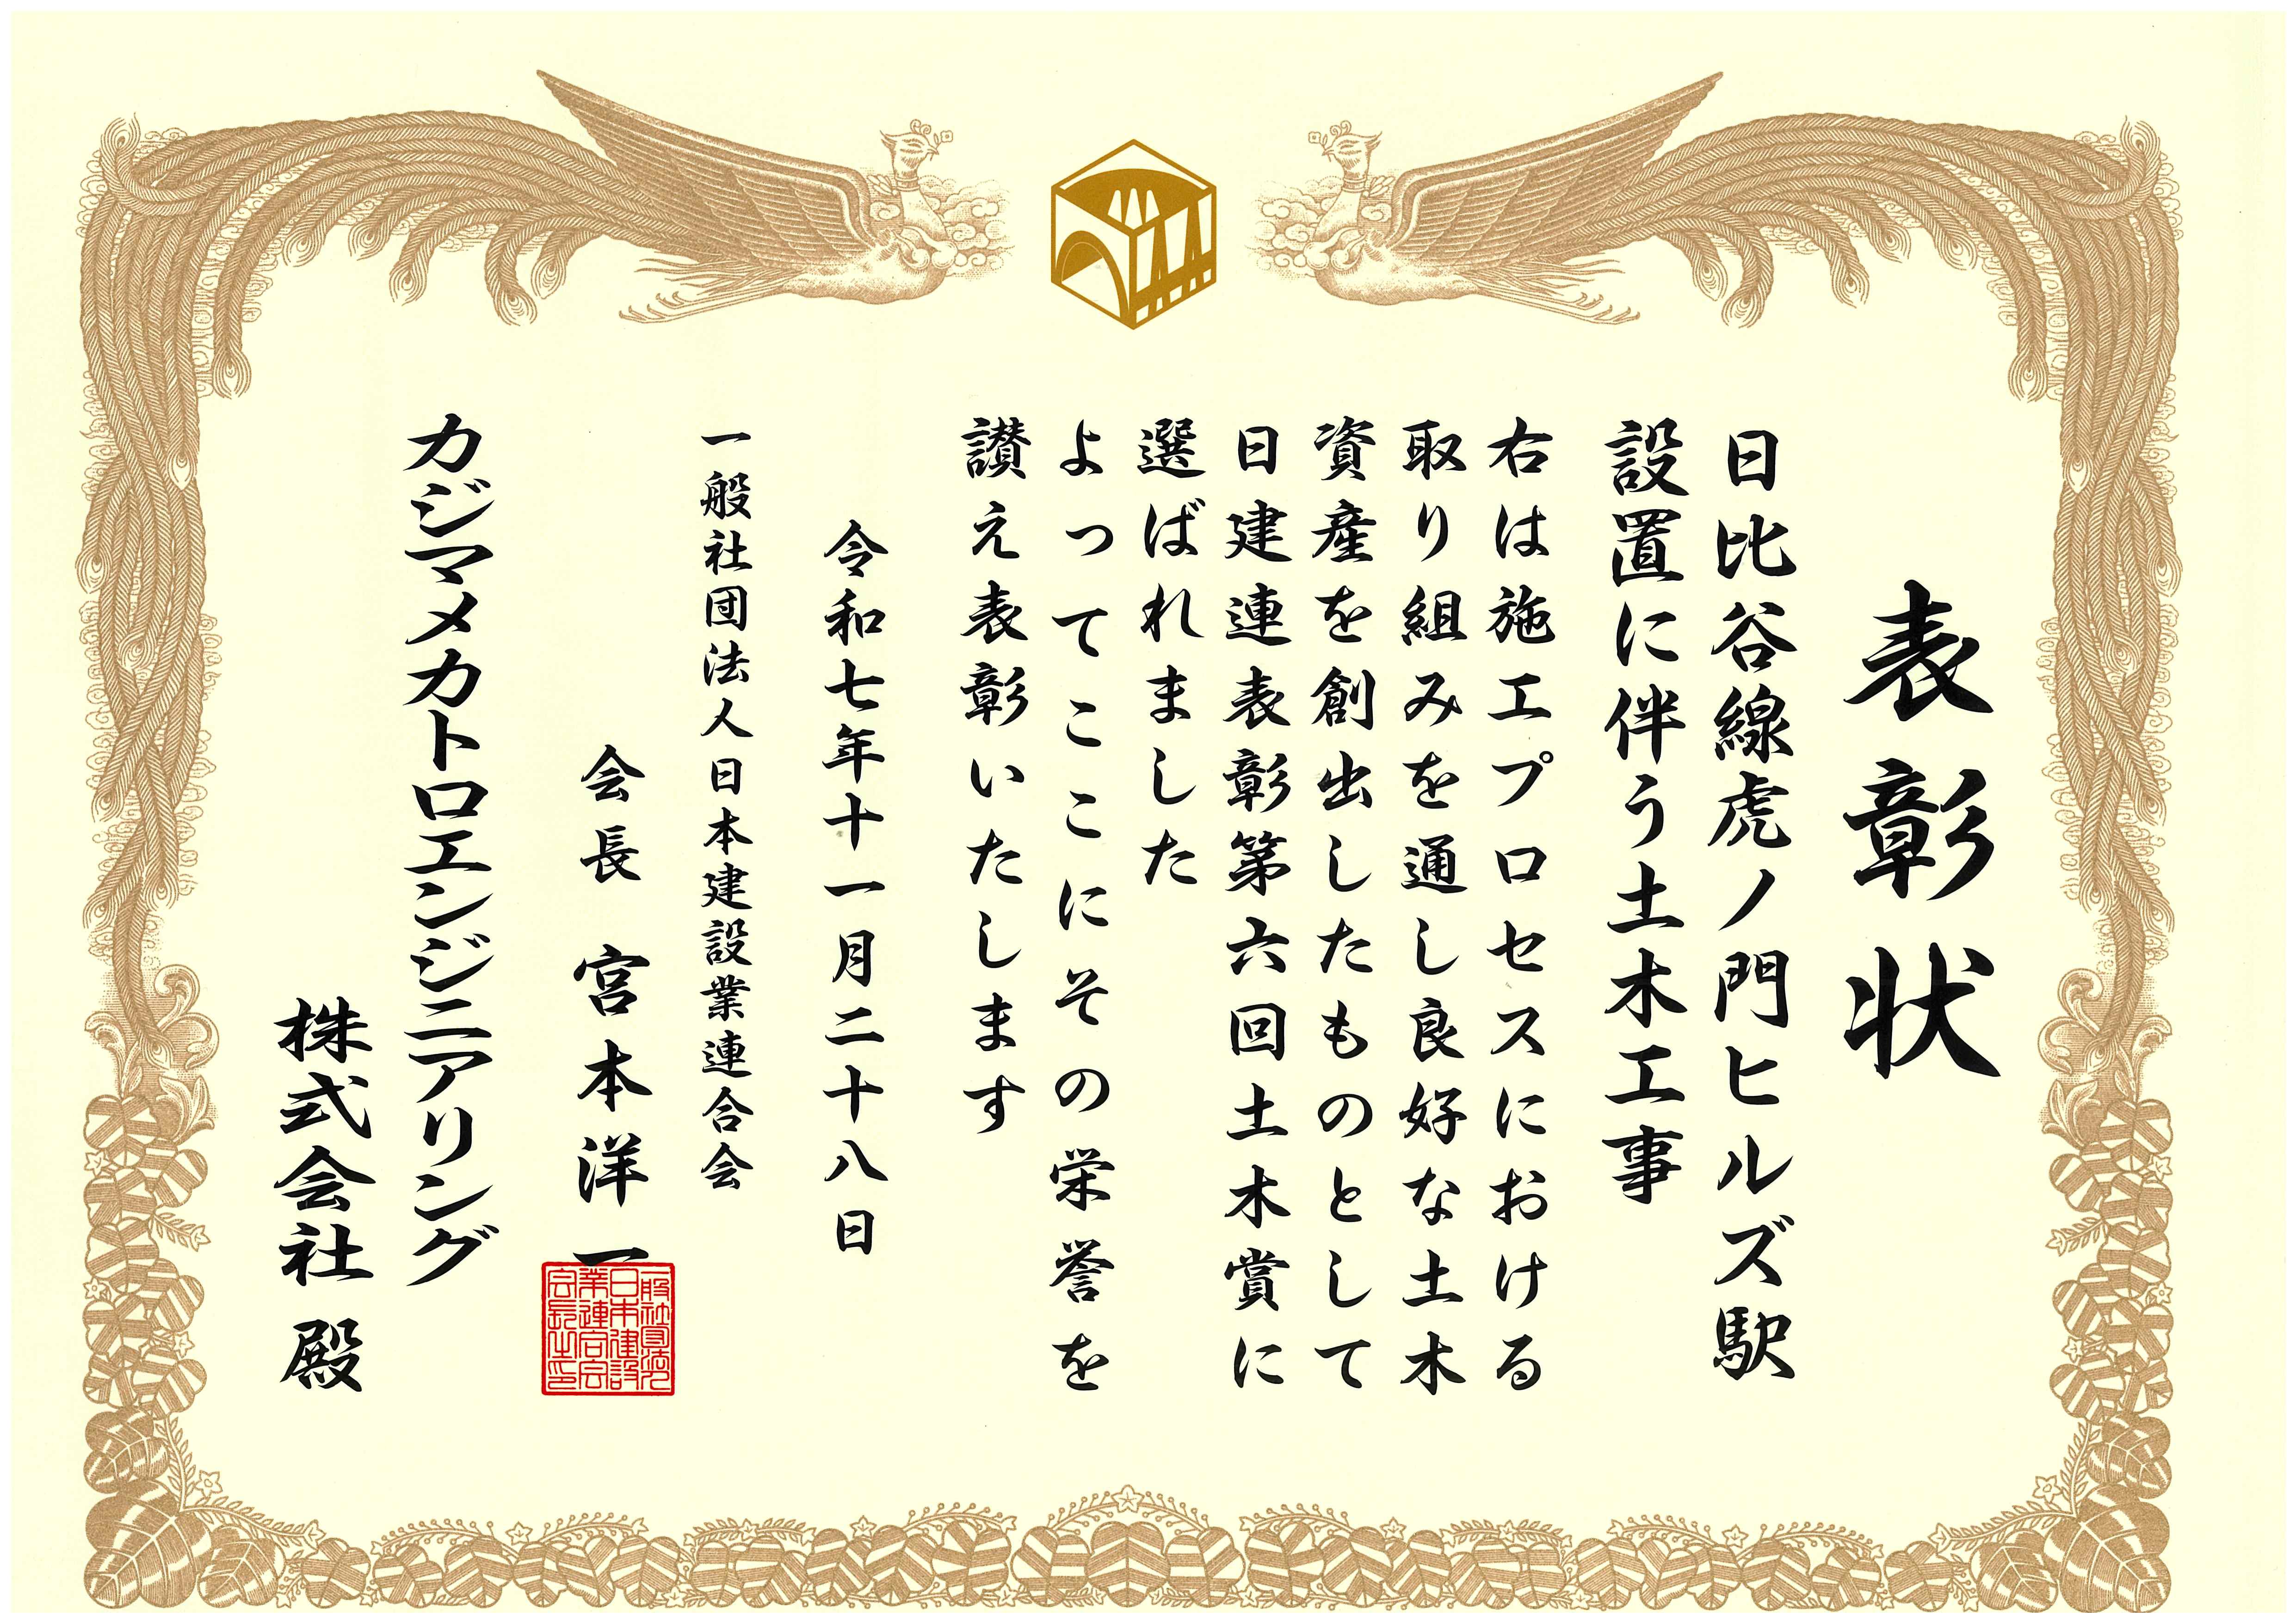 表彰状
日比谷線虎ノ門ヒルズ駅
設置に伴う土木工事
右は施工プロセスにおける
取り組みを通し良好な土木
資産を創出したものとして
日建連表彰第六回土木賞に
選ばれました
よってここにその栄誉を
讃え表彰いたします
令和七年十一月二十八日
一般社団法人日本建設業連合会
会長 宮本洋一
一般社団法人
日本建設
業連合会
会長之印
カジマメカトロエンジニアリング
株式会社 殿